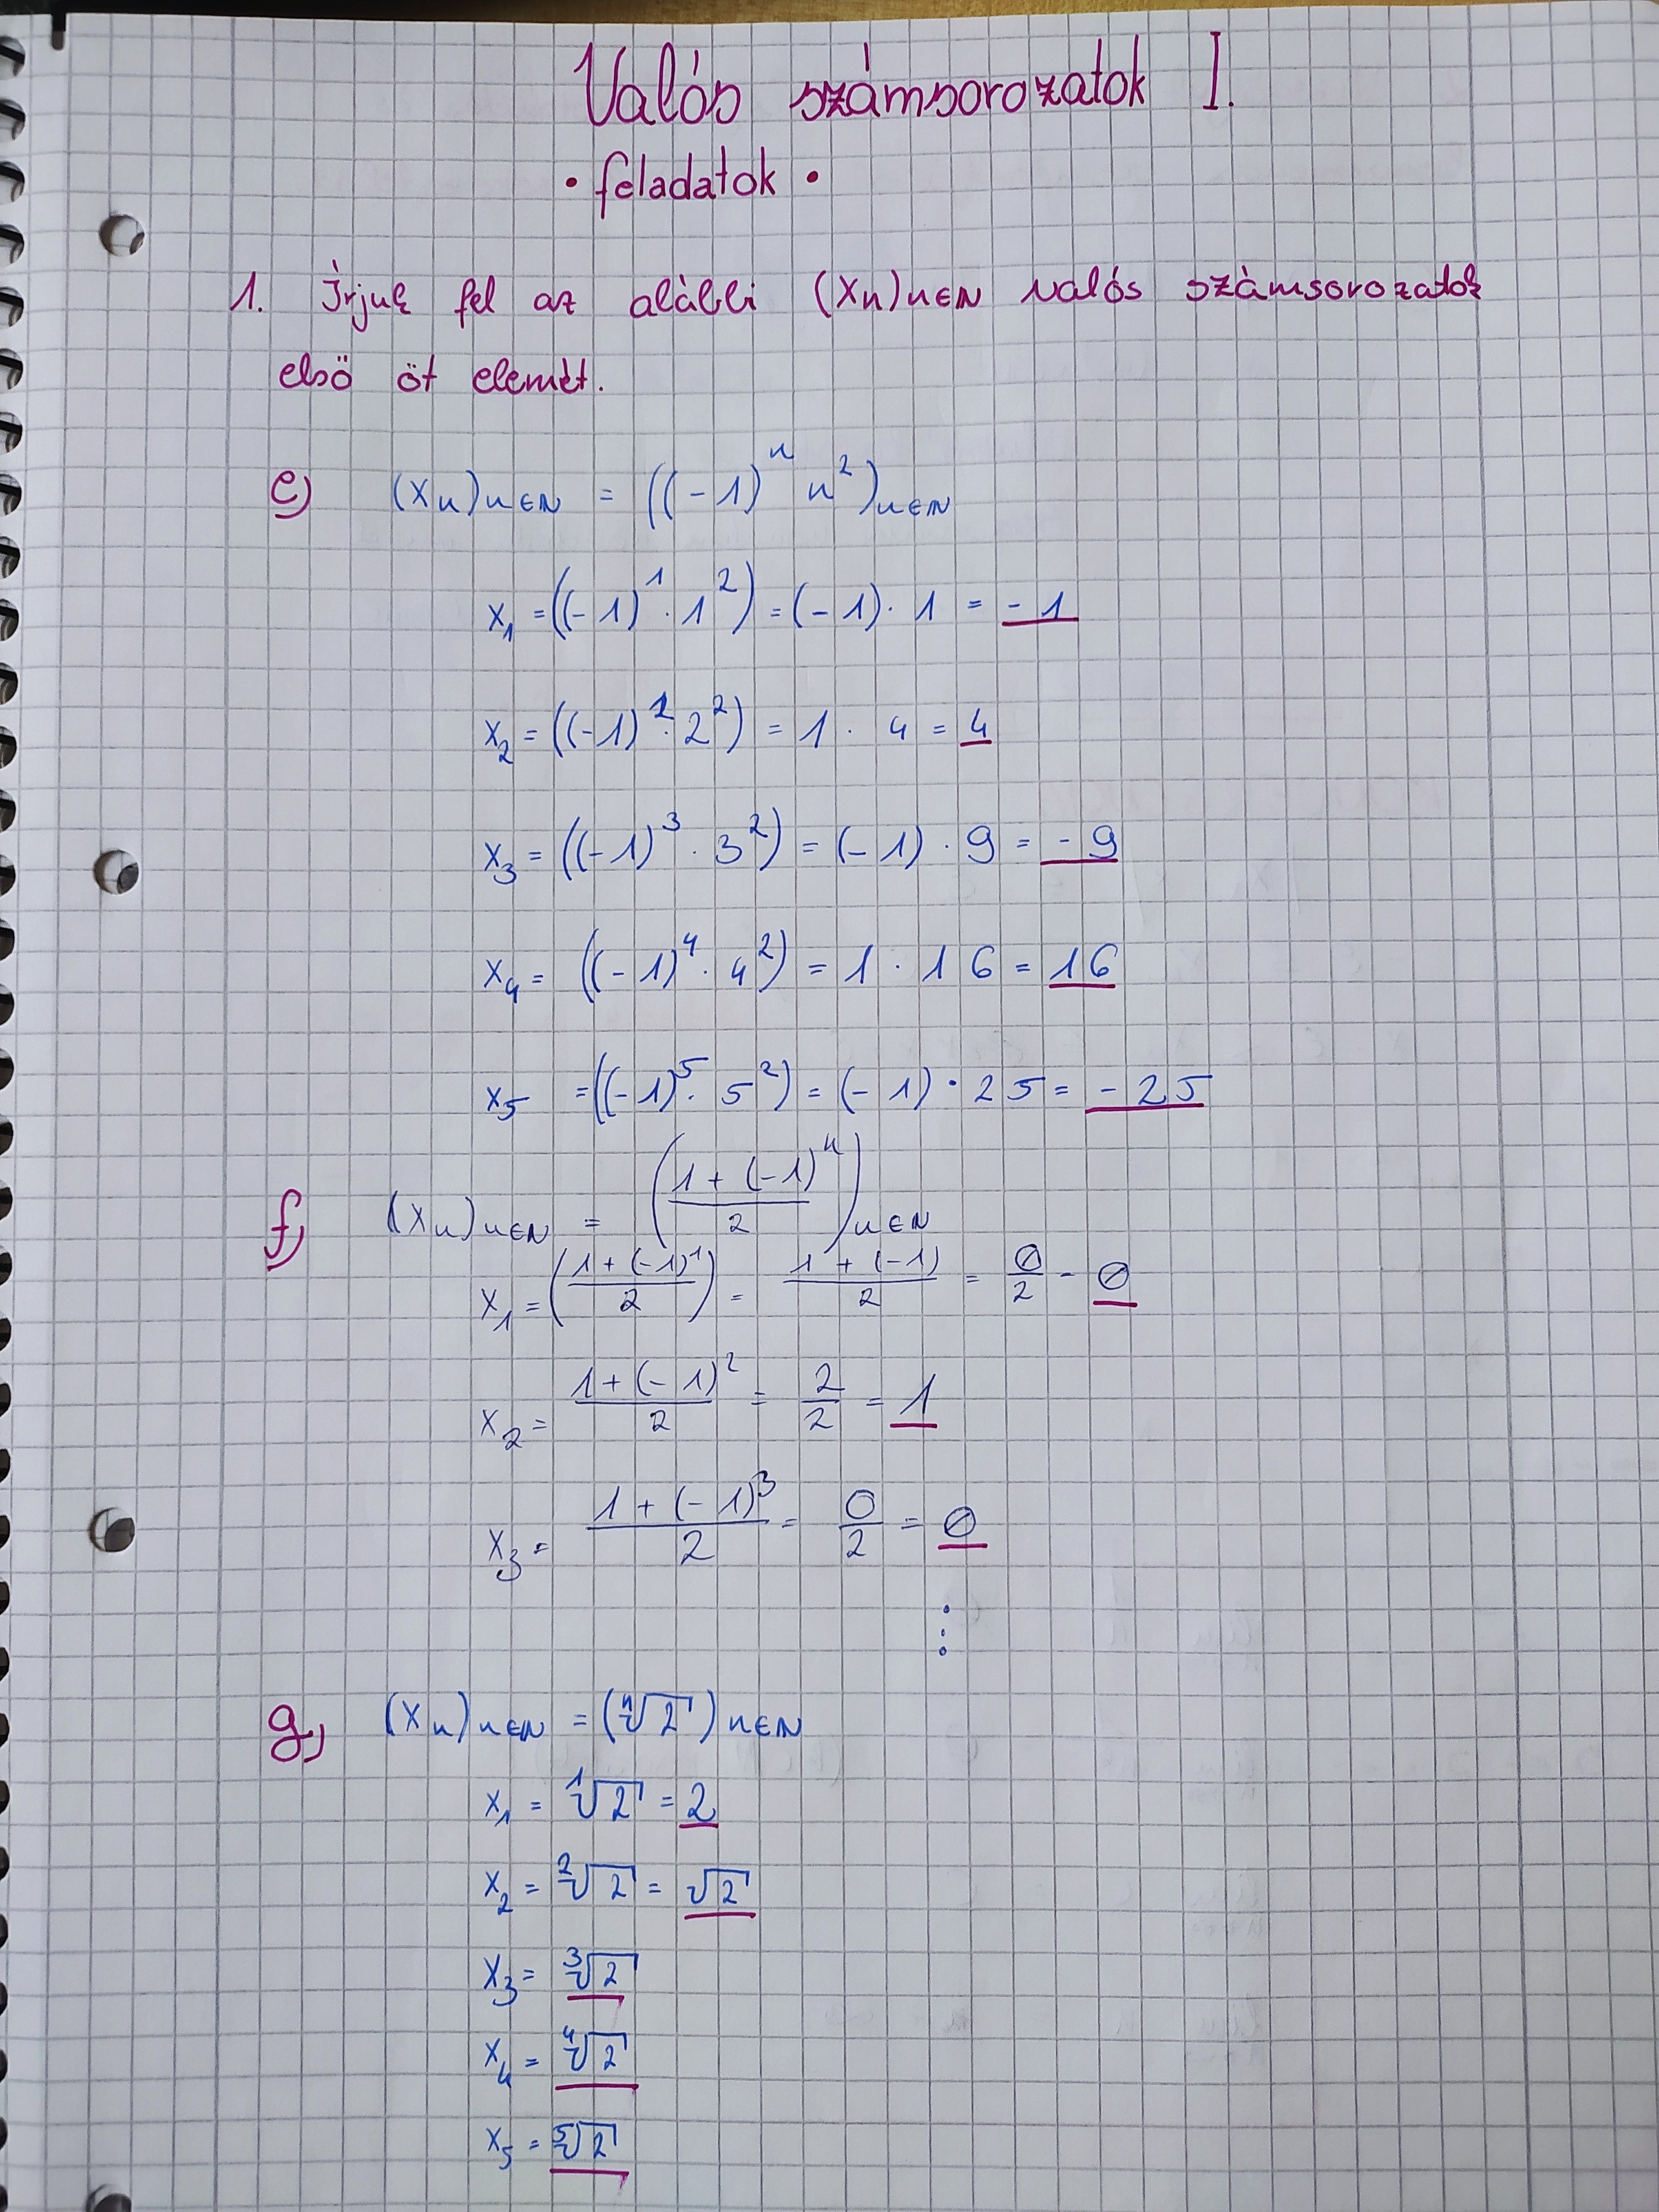 Valós számsorozatok I.
• feladatok •
1. Írjuk fel az alábbi (Xn)n∈N valós számsorozatok
első öt elemét.
e) (Xn)n∈N = ((-1)^n n^2)n∈N
x₁ = ((-1)^1 · 1^2) = (-1) · 1 = -1
x₂ = ((-1)^2 · 2^2) = 1 · 4 = 4
x₃ = ((-1)^3 · 3^2) = (-1) · 9 = -9
x₄ = ((-1)^4 · 4^2) = 1 · 16 = 16
x₅ = ((-1)^5 · 5^2) = (-1) · 25 = -25
f) (Xn)n∈N = ((1 + (-1)^n)/2)n∈N
x₁ = ((1 + (-1)^1)/2) = (1 + (-1))/2 = 0/2 = 0
x₂ = (1 + (-1)^2)/2 = 2/2 = 1
x₃ = (1 + (-1)^3)/2 = 0/2 = 0
⋮
g) (Xn)n∈N = (ⁿ√2)n∈N
x₁ = ¹√2 = 2
x₂ = ²√2 = √2
x₃ = ³√2
x₄ = ⁴√2
x₅ = ⁵√2